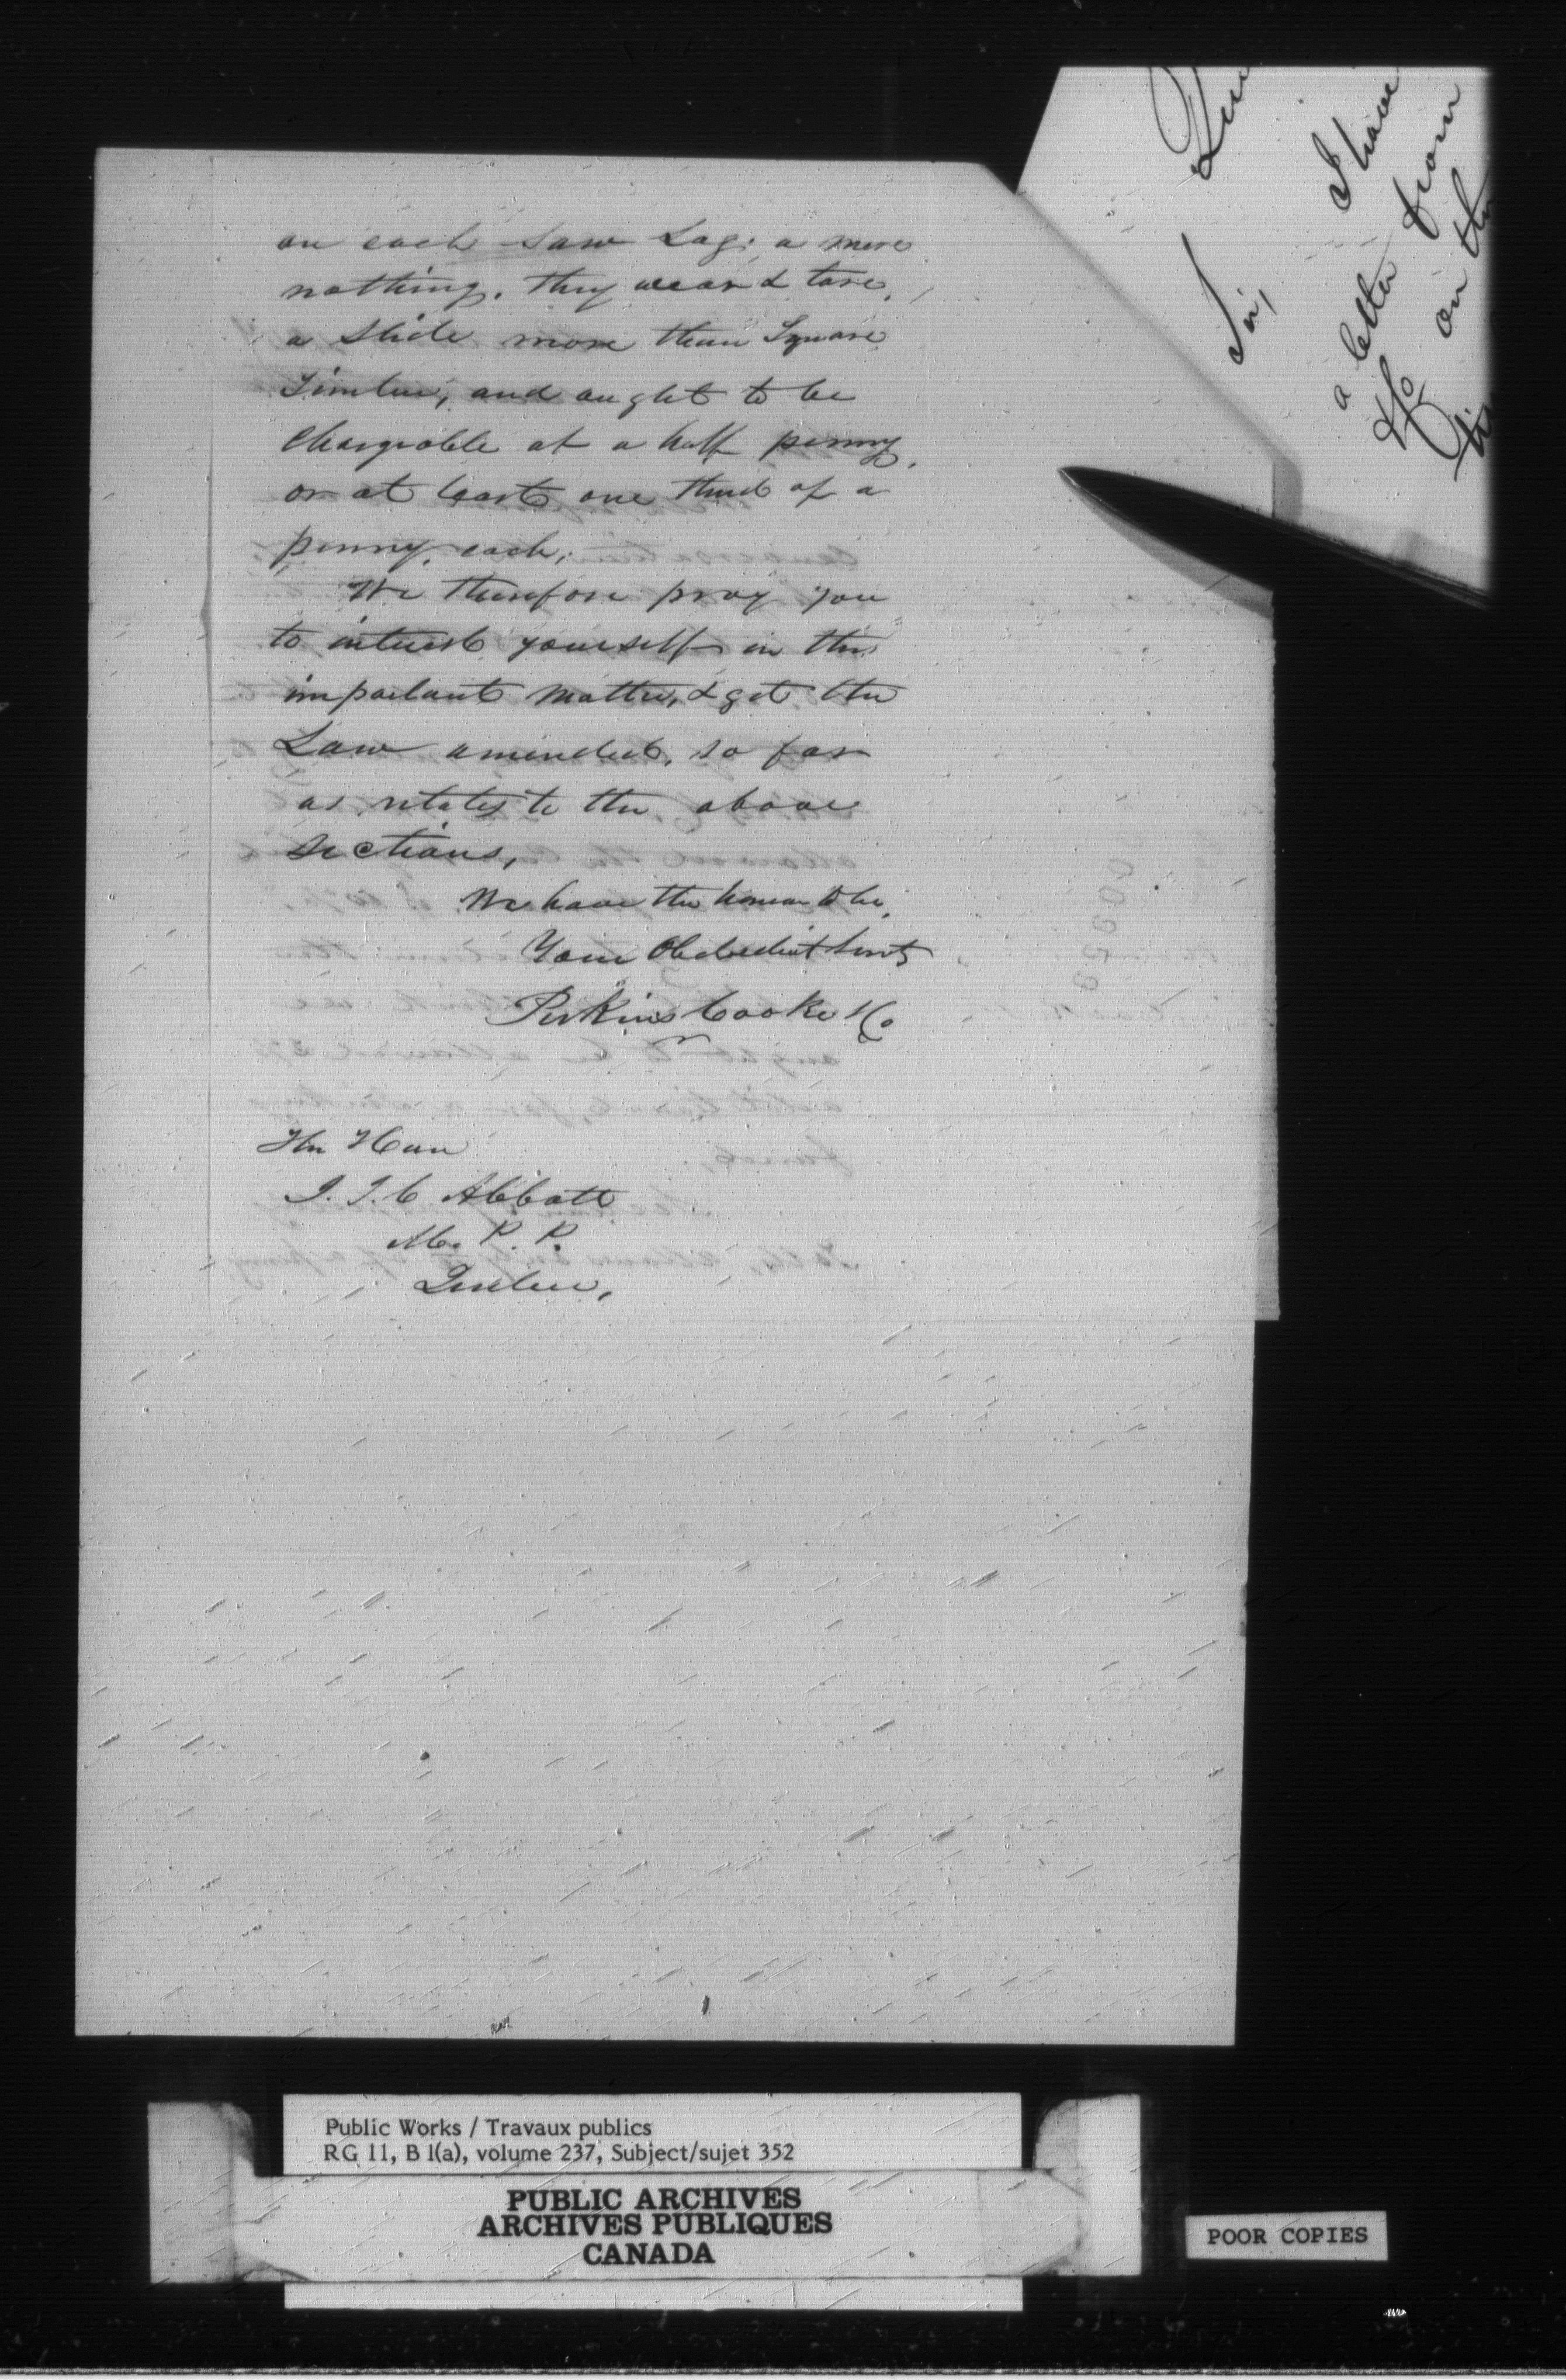 on each Saw Log; a mere
nothing. They wear & tare,
a Slide more than Square
Timber, and ought to be
Chargeable at a half penny,
or at least one third of a
penny, each;
We therefore pray you
to interest yourself in this
important matter, & get the
Law amended, so far
as relates to the above
sections,
We have the honour to be,
Your Obedient Servts
Perkins Cooke & Co
The Hon
J. J. C Abbott
M. P. P.
Quebec,
Sir,
I have
a letter from
on the
Public Works / Travaux publics
RG 11, B 1(a), volume 237, Subject/sujet 352
PUBLIC ARCHIVES
ARCHIVES PUBLIQUES
CANADA
POOR COPIES